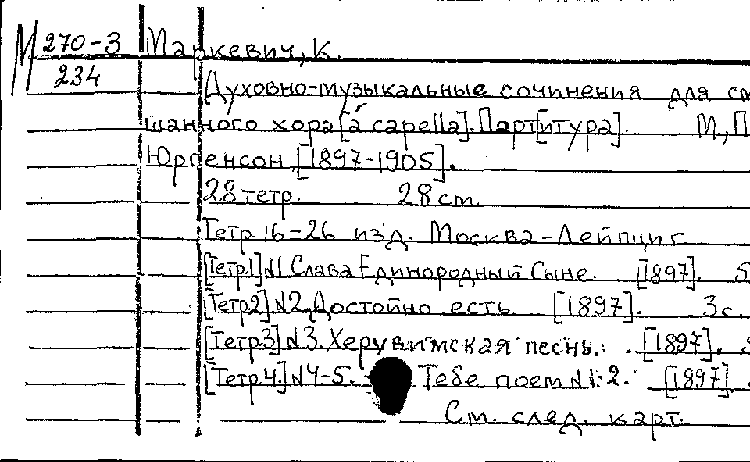 М 270-3 Маркевич, К.
234
Духовно-музыкальные сочинения для см
шанного хора [á capella]. Парт[итура]. М., П.
Юргенсон, [1897-1905].
28 тетр. 28 см.
Тетр 16-26 изд. Москва-Лейпциг
[Тетр1] №1 Слава Единородный Сыне. [1897]. 5
[Тетр2] №2 Достойно есть [1897]. 3 с.
[Тетр3] №3. Херувимская песнь. [1897].
[Тетр.4.] №4-5. Тебе поем №1-2. [1897]
См. след. карт.